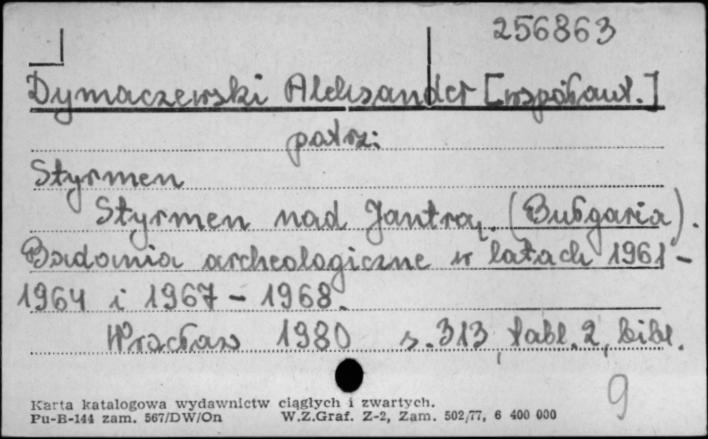 256863
Dymaczewski Aleksander [współaut.]
patrz:
Styrmen
Styrmen nad Jantrą. (Bułgaria).
Badania archeologiczne w latach 1961-
1964 i 1967 - 1968.
Wrocław 1980 s. 313, tabl. 2, bibl.
9
Karta katalogowa wydawnictw ciągłych i zwartych.
Pu-B-144 zam. 567/DW/On W.Z.Graf. Z-2, Zam. 502/77, 6 400 000